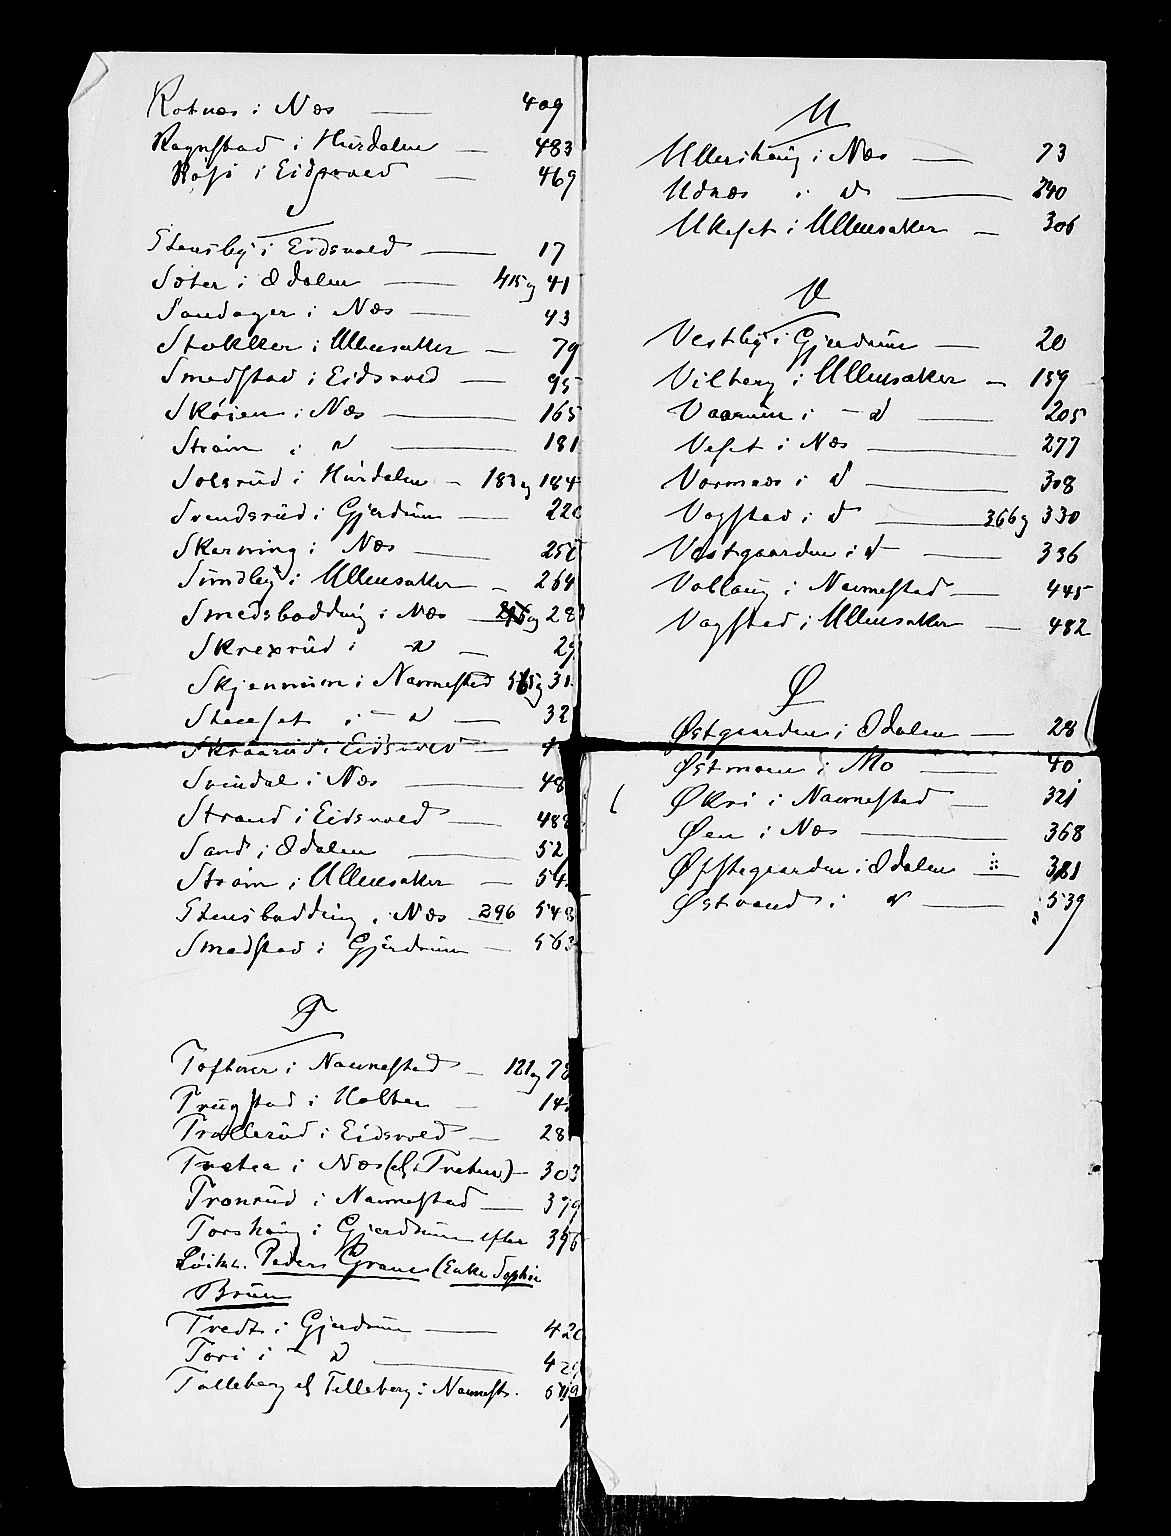 Rotnæs i Næs — 409
Ragnstad i Hurdalen — 483
Røsi i Eidsvold — 469
S
Stensby i Eidsvold — 17
Sæter i Odalen — 415 og 41
Sandager i Næs — 43
Stokker i Ullensaker — 79
Smedstad i Eidsvold — 95
Skøien i Næs — 165
Strøm i d — 181
Solsrud i Hurdalen — 183 og 184
Svendsrud i Gjerdrum — 220
Skarning i Næs — 250
Sundby i Ullensaker — 264
Smedsbødding i Næs — og 28
Skrexrud i d — 29
Skjennum i Nannestad 565 og 31
Steeset i — d — 32
Skraarud i Eidsvold — 4
Svindal i Næs — 48
Strand i Eidsvold — 488
Sand i Odalen — 52
Strøm i Ullensaker — 54
Stensbødding i Næs 296 548
Smedstad i Gjerdrum — 563
T
Toftner i Nannestad — 121 og 78
Trugstad i Holter — 14
Trøllerud i Eidsvold — 28
Trætea i Næs (el. Træten) — 303
Tronrud i Nannestad — 379
Torshaug i Gjerdrum efter 396
Løitn. Peders Graves (Enke Sophie
Bruun
Tvedt i Gjerdrum — 420
Tori i — d — 429
Tølleberg el Tilleberg i Nannest. 549
U
Ullershaug i Næs — 73
Udnæs i d — 240
Ukeset i Ullensaker — 306
V
Vestby i Gjerdrum — 20
Vilberg i Ullensaker — 159
Vaarum i — d — 205
Veset i Næs — 277
Vormnæs i d — 308
Vogstad i d — 366 og 330
Vestgaarden i d — 336
Vollaug i Nannestad — 445
Vogstad i Ullensaker — 482
Ø
Østgaarden i Odalen — 28
Østmoen i Mo — 40
Økri i Nannestad — 321
Øen i Næs — 368
Øfstegaarden i Odalen — 381
Østvand i d — 539